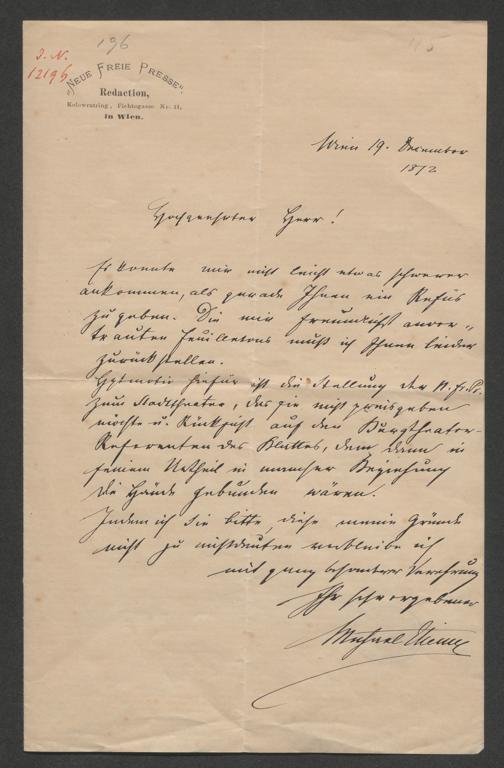 196
J. N.
12196
"NEUE FREIE PRESSE".
Redaction,
Kolowratring, Fichtegasse Nr. 11,
in Wien.
Wien 19. December
1872
Hochgeehrter Herr!
Es konnte mir nicht leicht etwas schwerer
ankommen, als gerade Ihnen ein Refus
zu geben. Die mir freundlichst anver-
trauten Feuilletons muß ich Ihnen leider
zurückstellen.
Hptmotiv hiefür ist die Stellung der N. Fr. Pr.
zum Stadttheater, das sie nicht preisgeben
möchte u. Rücksicht auf den Burgtheater-
Referenten des Blattes, dem dann in
seinem Urtheil in mancher Beziehung
die Hände gebunden wären.
Indem ich Sie bitte, diese meine Gründe
nicht zu mißdeuten verbleibe ich
mit ganz besonderer Verehrung
Ihr sehr ergebener
Michael Etienne